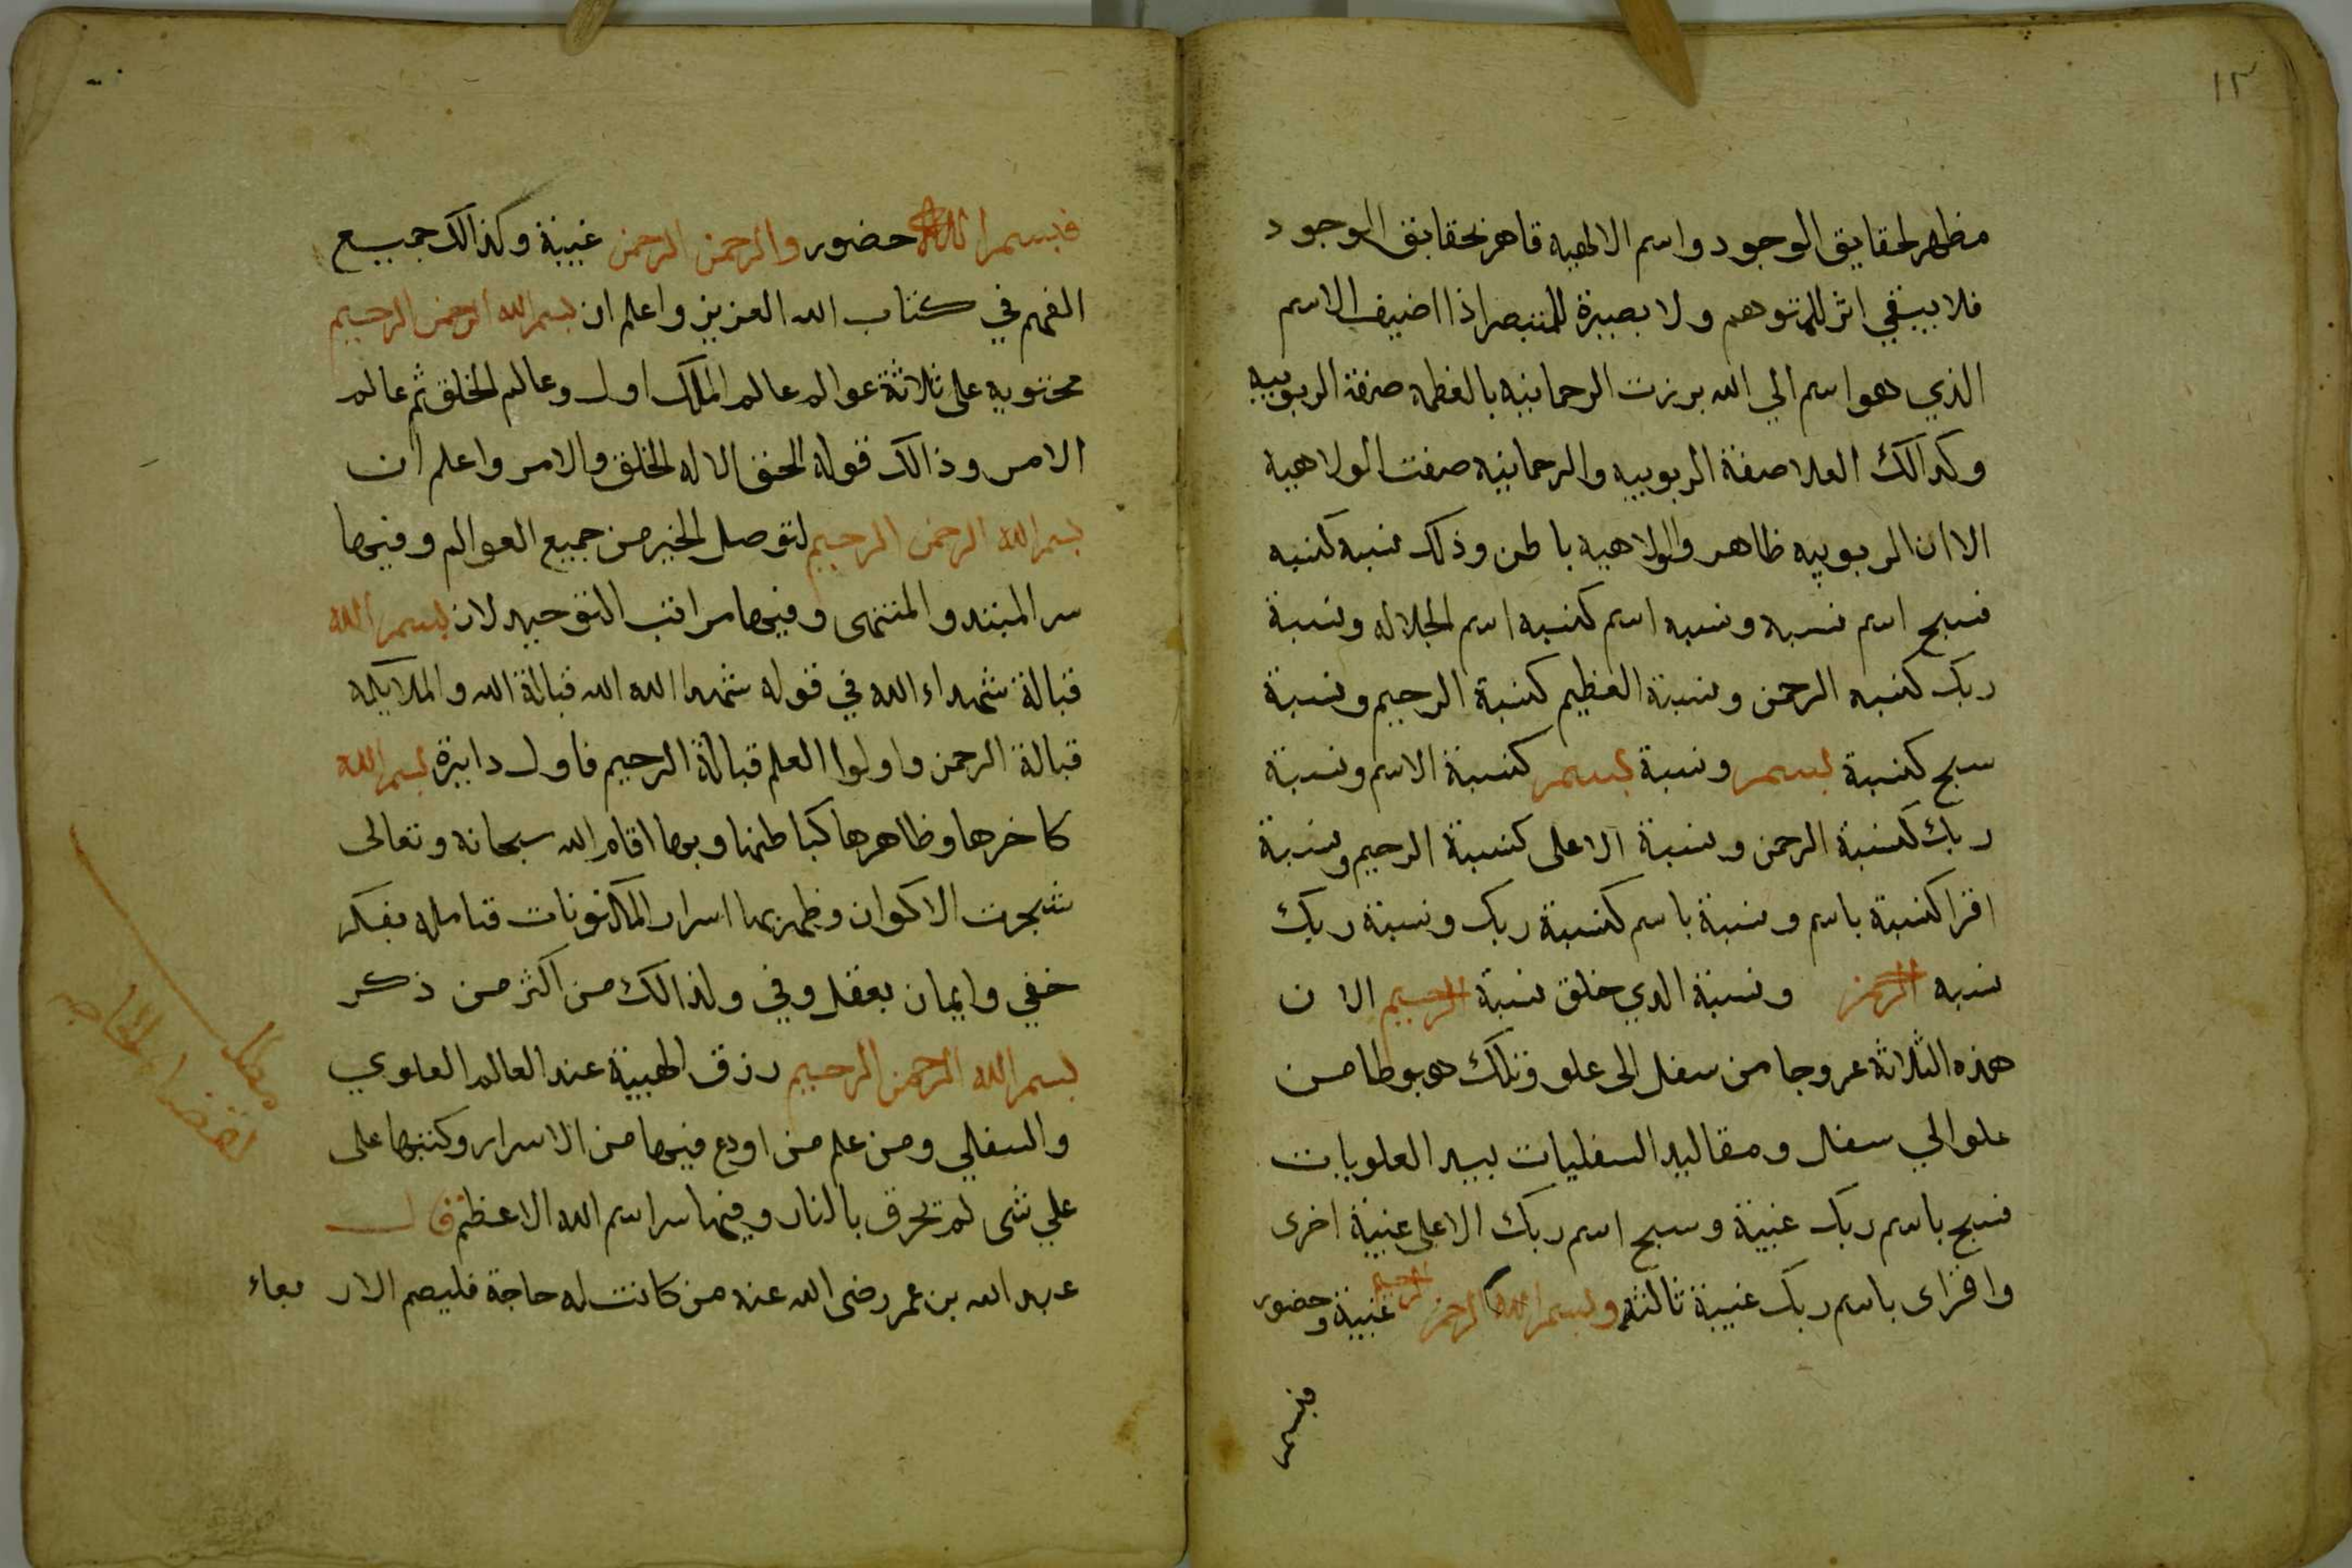 ١٢
مظهر لحقايق الوجود واسم الالهيه قاهر لحقايق الوجود
فلا يبقي اثر للمتوهم ولا بصيرة للمتبصر اذا اضيف الاسم
الذي هو اسم الي الله برزت الرحمانيه بالعظمه صفة الربوبيه
وكدالك العلا صفة الربوبيه والرحمانيه صفت الولاهية
الا ان الربوبيه ظاهر والولاهيه باطن وذلك نسبه كنسبه
فسبح اسم نسبه ونسبه اسم كنسبه اسم الجلاله ونسبة
ربك كنسبه الرحمن ونسبة العظيم كنسبة الرحيم ونسبة
سبح كنسبة بسم ونسبة بسم كنسبة الاسم ونسبة
ربك كنسبة الرحمن ونسبة الاعلى كنسبة الرحيم ونسبة
اقرا كنسبة باسم ونسبة باسم كنسبة ربك ونسبة ربك
نسبه الرحمن ونسبة الدي خلق نسبة الرحيم الا ن
هذه الثلاثة عروجا من سفل الى علو وتلك هبوطا من
علو الي سفل ومقاليد السفليات بيد العلويات
فسبح باسم ربك غيبة وسبح اسم ربك الاعلى غيبة اخرى
واقراى باسم ربك غيبة ثالثة وبسم الله الرحمن الرحيم غيبة وحضور
فبسم
فبسم الله حضور والرحمن الرحمن غيبة وكذالك جميع
الفهم في كتاب الله العزيز واعلم ان بسم الله الرحمن الرحيم
محتويه على ثلاثة عوالم عالم الملك اول وعالم الخلق ثم عالم
الامر وذالك قوله الحق الا له الخلق والامر واعلم ان
بسم الله الرحمن الرحيم لتوصل الخير من جميع العوالم وفيها
سر المبتدو المنتهى وفيها مراتب التوحيد لان بسم الله
قبالة شهداء الله في قوله شهد الله الله قبالة الله والملايكه
قبالة الرحمن واولوا العلم قبالة الرحيم فاول دايرة بسم الله
كاخرها وظاهرها كباطنها وبها اقام الله سبحانه وتعالى
شجرت الاكوان وظهر بها اسرار المكنونات فتامله بفكر
خفي وايمان بعقل وفي ولذالك من اكثر من ذكر
بسم الله الرحمن الرحيم رزق الهيبة عند العالم العلوي
والسفلي ومن علم من اودع فيها من الاسرار وكتبها على
علي شى لم تحرق بالنار وفيها سر اسم الله الاعظم قال
عبد الله بن عمر رضى الله عنه من كانت له حاجة فليصم الار بعاء